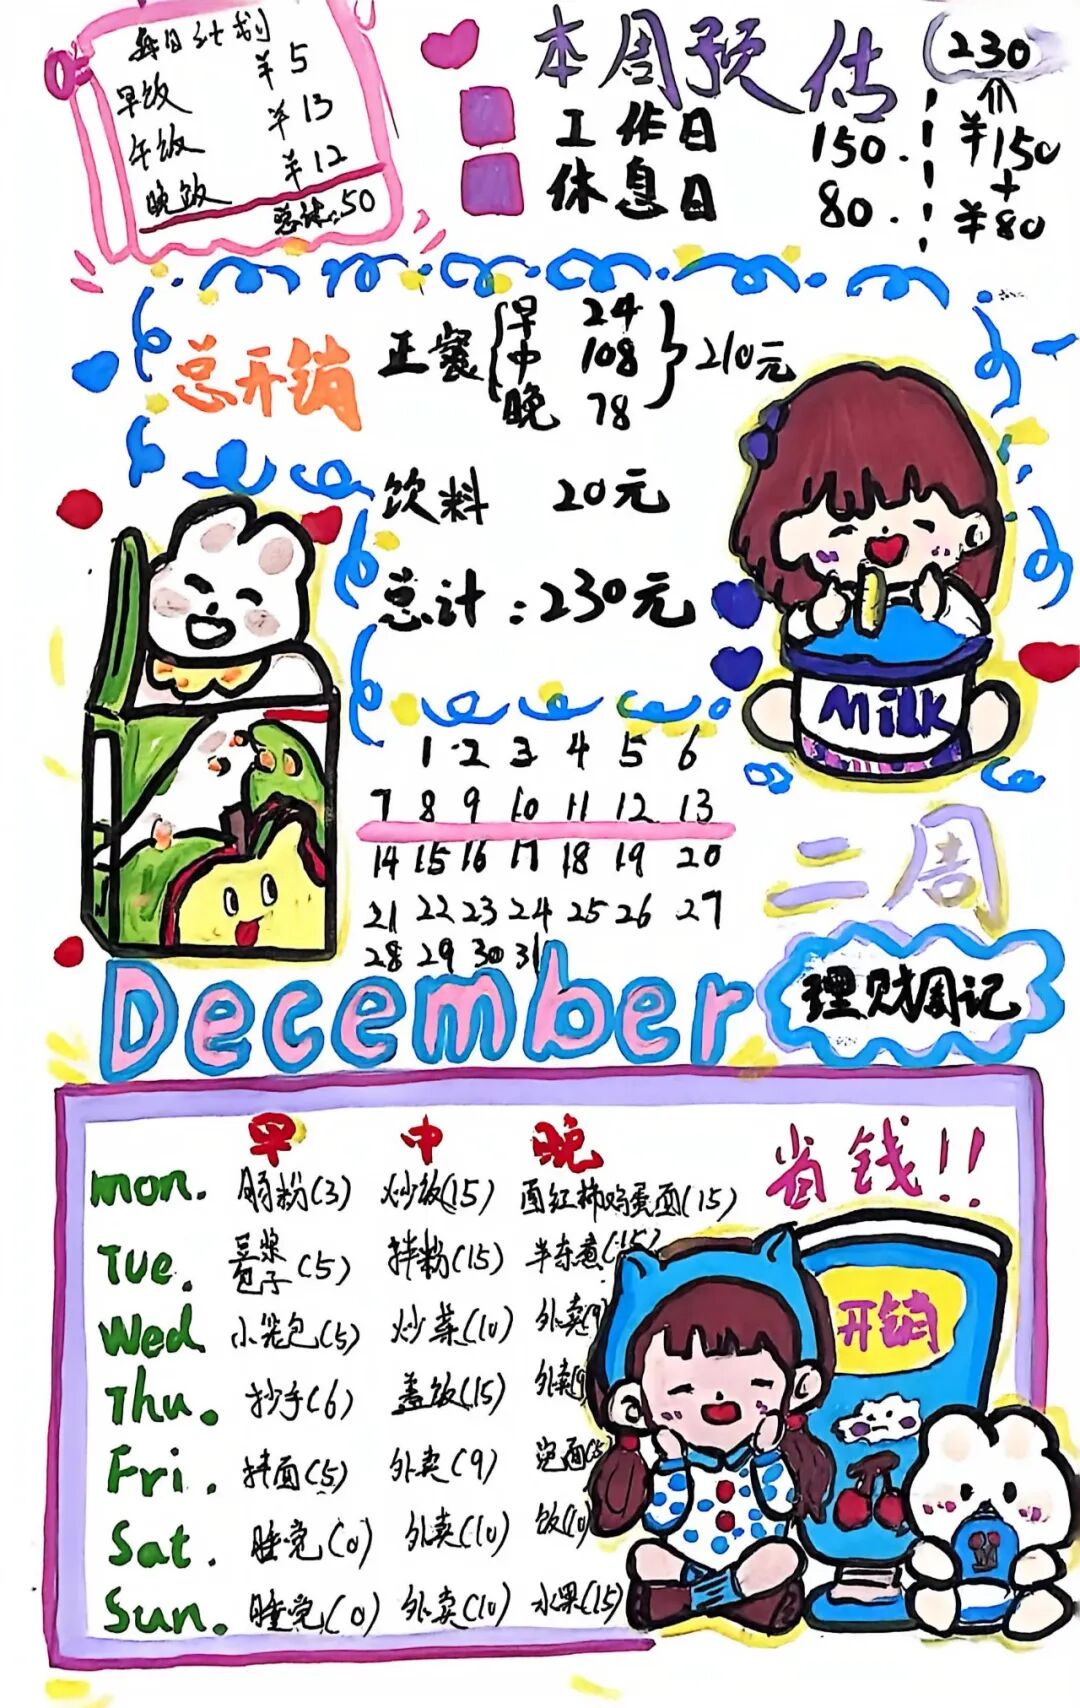 每日计划
早饭 ¥5
午饭 ¥13
晚饭 ¥12
总计:50
本周预估 (230)
工作日 150.
休息日 80.
¥150
+
¥80
总开销
正餐
早 24
中 108
晚 78
210元
饮料 20元
总计:230元
Milk
1 2 3 4 5 6
7 8 9 10 11 12 13
14 15 16 17 18 19 20
21 22 23 24 25 26 27
28 29 30 31
二周
December
理财周记
早 中 晚
省钱!!
mon. 肠粉(3) 炒饭(15) 西红柿鸡蛋面(15)
Tue. 豆浆包子(5) 拌粉(15) 半东煮(15)
Wed 小笼包(5) 炒菜(10) 外卖(9)
Thu. 抄手(6) 盖饭(15) 外卖(9
Fri. 拌面(5) 外卖(9) 泡面(5)
Sat. 睡觉(0) 外卖(10) 饭(10)
Sun. 睡觉(0) 外卖(10) 水果(15)
开销